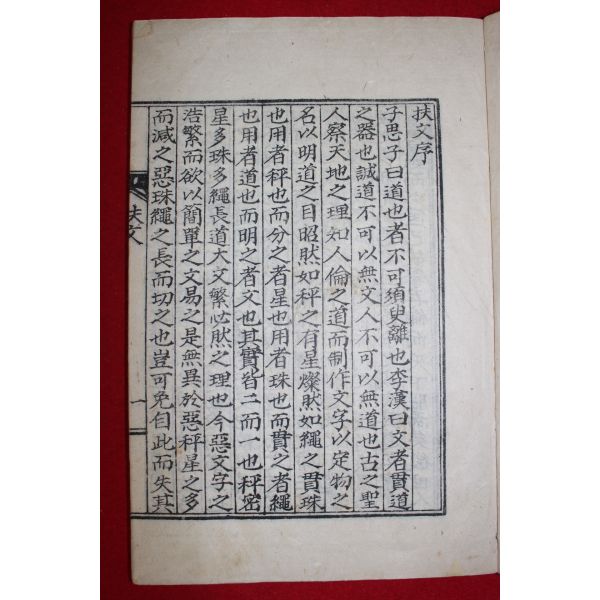 扶文序
子思子曰道也者不可須臾離也李漢曰文者貫道
之器也誠道不可以無文人不可以無道也古之聖
人察天地之理如人倫之道而制作文字以定物之
名以明道之目昭然如秤之有星燦然如繩之貫珠
也用者秤也而分之者星也用者珠也而貫之者繩
也用者道也而明之者文也其實皆二而一也秤密
星多珠多繩長道大文繁必然之理也今惡文字之
浩繁而欲以簡單之文易之是無異於惡秤星之多
而減之惡珠繩之長而切之也豈可免自此而失其
扶文
一